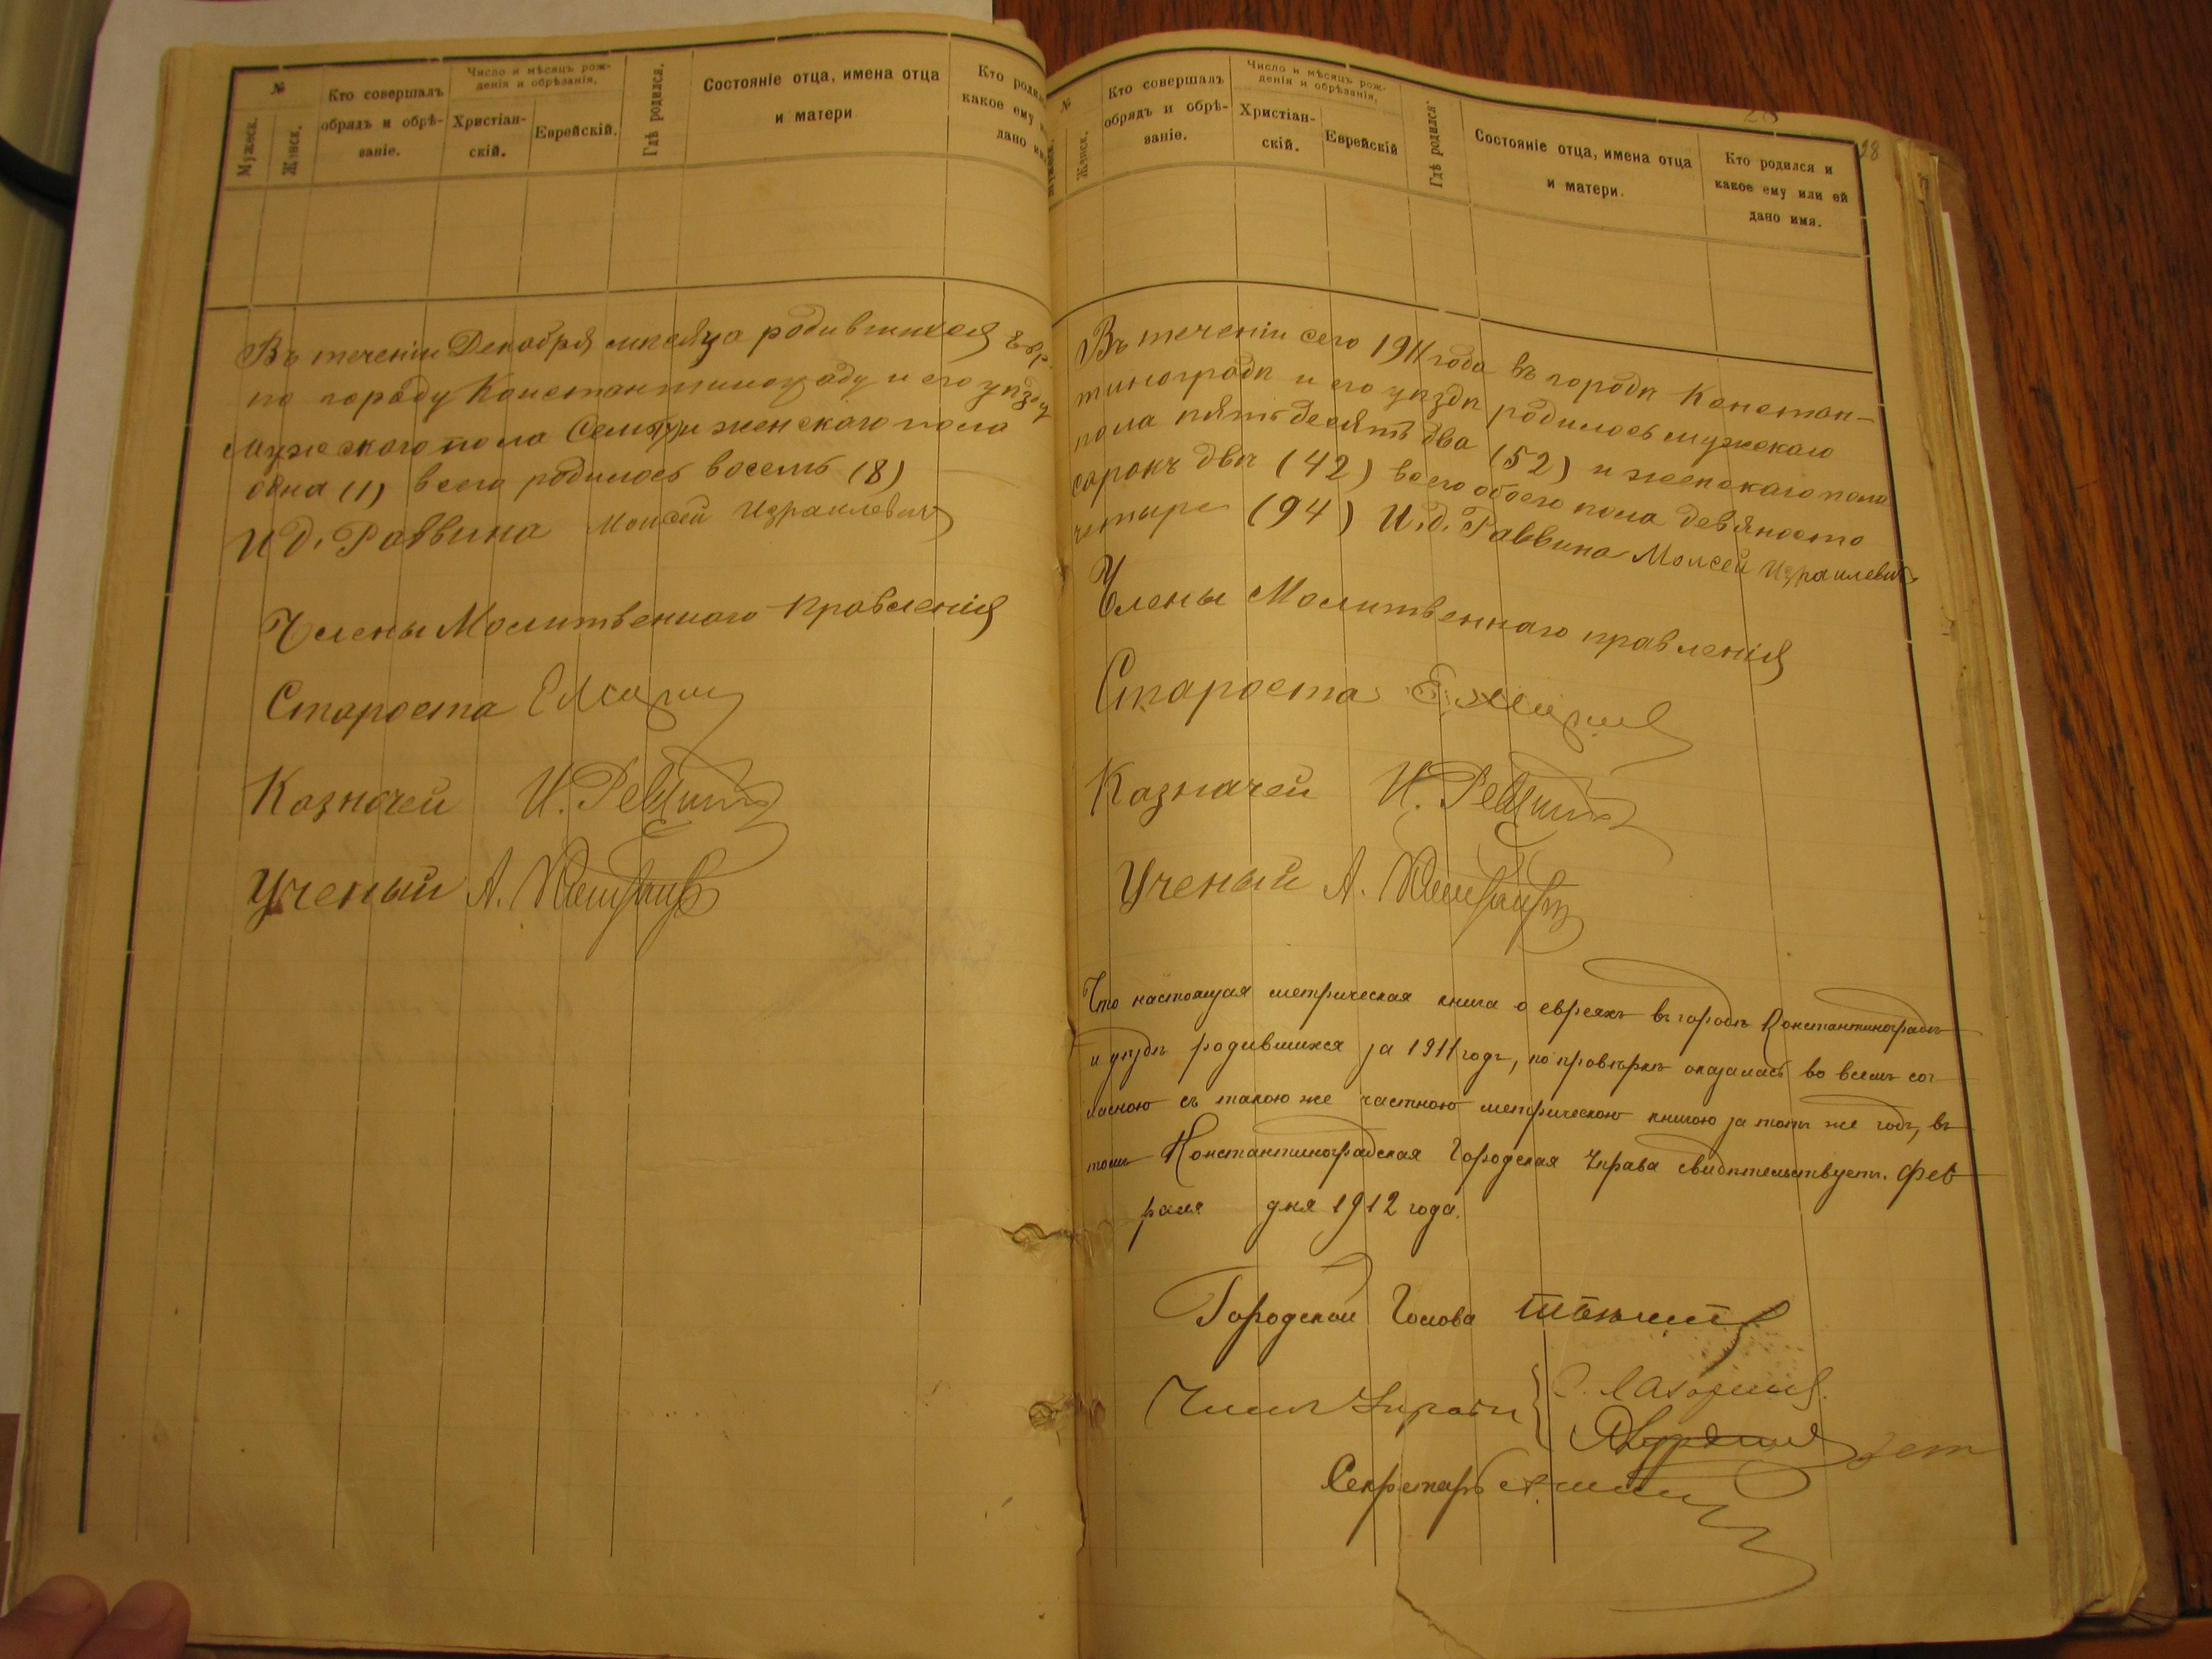 №
Мужеск.
Женск.
Кто совершалъ
обрядъ и обрѣ-
заніе.
Число и мѣсяцъ рож-
денія и обрѣзанія.
Христіан-
скій.
Еврейскій.
Гдѣ родился.
Состояніе отца, имена отца
и матери
Кто
какое ему
дано
Въ теченіи Декабря мѣсяца родившихся Евр.
по городу Константинограду и его уѣзду
мужескаго пола Семь и женскаго пола
одна (1) всего родилось восемь (8)
И Д. Раввина Моисей Израилевичъ
Члены Молитвеннаго Правленія
Староста
Казначей И.
Ученый А.
№
Женск.
Кто совершалъ
обрядъ и обрѣ-
заніе.
Число и мѣсяцъ рож-
денія и обрѣзанія.
Христіан-
скій.
Еврейскій
Гдѣ родился.
Состояніе отца, имена отца
и матери.
Кто родился и
какое ему или ей
дано имя.
28
Въ теченіи сего 1911 года въ городѣ Констан-
тиноградѣ и его уѣздѣ родилось мужскаго
пола пятьдесятъ два (52) и женскаго пола
сорокъ двѣ (42) всего обоего пола девяносто
четыре (94) И.д. Раввина Моисей Израилевичъ
Члены Молитвеннаго правленія
Староста
Казначей И.
Ученый А.
Что настоящая метрическая книга о евреяхъ въ городѣ Константиноградѣ
и уѣздѣ родившихся за 1911 годъ, по провѣркѣ оказалась во всемъ сог
ласною съ такою же частною метрическою книгою за тотъ же годъ, въ
томъ Константиноградская Городская Управа свидѣтельствуетъ. Фев
раля дня 1912 года.
Городской Голова
Члены Управы
Секретарь